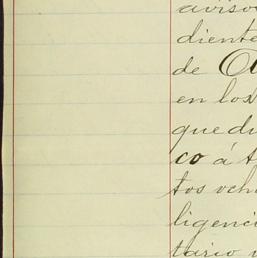 aviso
diente
de
en los
que du
co á t
tos och
ligenci
tario